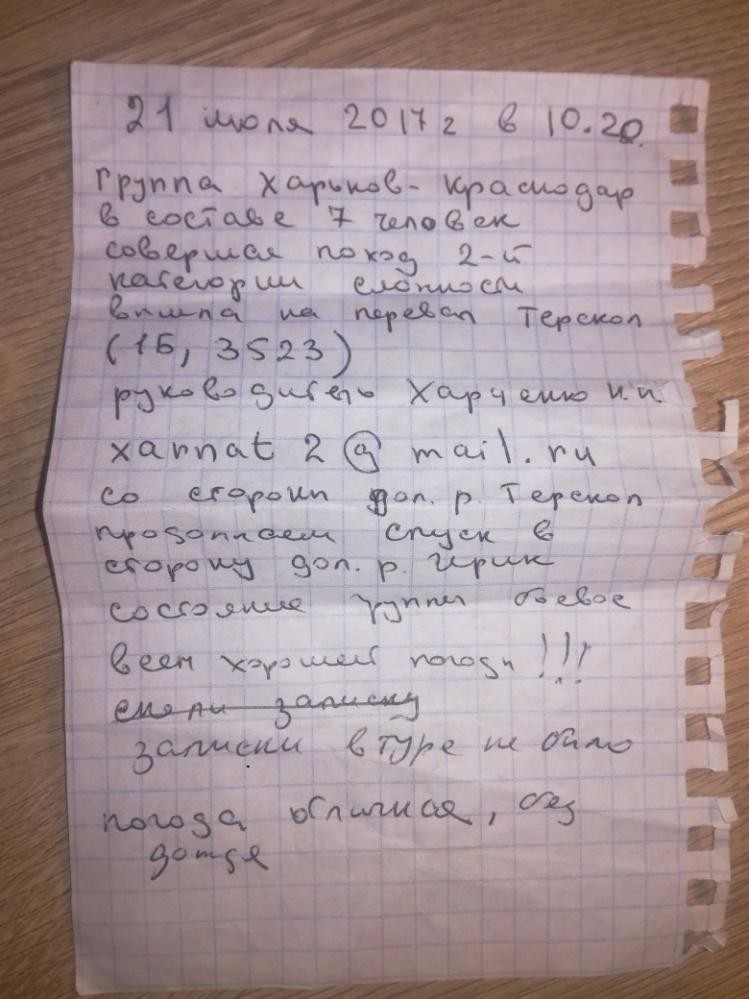 21 июля 2017 г в 10.20.
Группа Харьков - Краснодар
в составе 7 человек
совершая поход 2-й
категории сложности
вышла на перевал Терскол
(1Б, 3523)
руководитель Харченко И.И.
xarnat2@mail.ru
со стороны дол. р. Терскол
продолжаем спуск в
сторону дол. р. Ирик
состояние группы боевое
всем хорошей погоды!!!
сняли записку
записки в туре не было
погода отличная, без
дождя